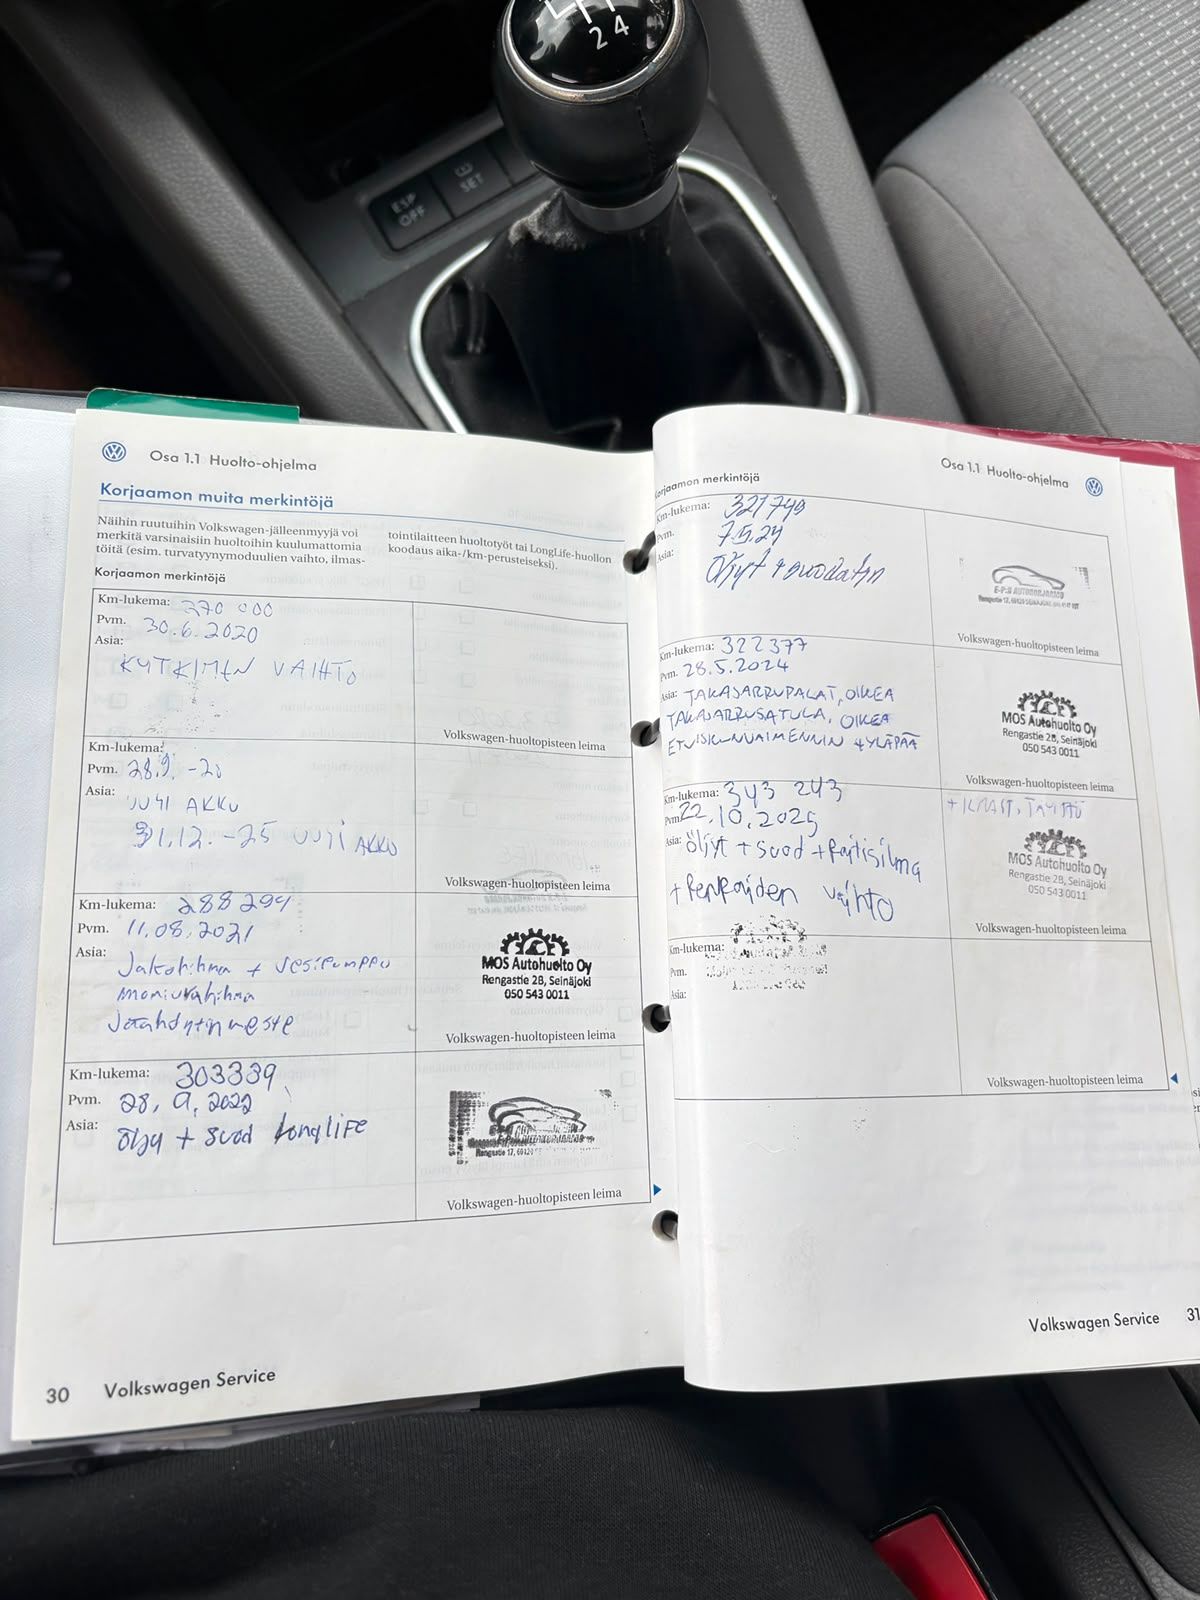 2 4
ESP
OFF
SET
Osa 1.1 Huolto-ohjelma
Korjaamon muita merkintöjä
Näihin ruutuihin Volkswagen-jälleenmyyjä voi
merkitä varsinaisiin huoltoihin kuulumattomia
töitä (esim. turvatyynymoduulien vaihto, ilmas-
tointilaitteen huoltotyöt tai LongLife-huollon
koodaus aika-/km-perusteiseksi).
Korjaamon merkintöjä
Km-lukema: 270 000
Pvm. 30.6.2020
Asia:
KYTKIMEN VAIHTO
Volkswagen-huoltopisteen leima
Km-lukema:
Pvm. 28.9. -20
Asia:
UUSI AKKU
31.12. -25 UUSI AKKU
Volkswagen-huoltopisteen leima
Km-lukema: 288294
Pvm. 11.08.2021
Asia:
Jakohihna + vesipumppu
moniurahihna
Jäähdytinneste
MOS Autohuolto Oy
Rengastie 28, Seinäjoki
050 543 0011
Volkswagen-huoltopisteen leima
Km-lukema: 303339
Pvm. 28.9.2022
Asia:
öljy + suod longlife
Rengastie 17, 60120
Volkswagen-huoltopisteen leima
30 Volkswagen Service
Osa 1.1 Huolto-ohjelma
Korjaamon merkintöjä
Km-lukema: 321749
Pvm. 7.5.24
Asia:
Öljyt + suodatin
E-P:N AUTOKORJAAMO
Volkswagen-huoltopisteen leima
Km-lukema: 322377
Pvm. 28.5.2024
Asia: TAKAJARRUPALAT, OIKEA
TAKAJARRUSATULA, OIKEA
ETUISKUNVAIMENNIN + YLÄPÄÄ
MOS Autohuolto Oy
Rengastie 28, Seinäjoki
050 543 0011
Volkswagen-huoltopisteen leima
Km-lukema: 343 243
Pvm. 22.10.2025
Asia: öljyt + suod + raitisilma
+ Renkaiden vaihto
+ ILMAST. TÄYTTÖ
MOS Autohuolto Oy
Rengastie 28, Seinäjoki
050 543 0011
Volkswagen-huoltopisteen leima
Km-lukema:
Pvm.
Asia:
Volkswagen-huoltopisteen leima
Volkswagen Service 31